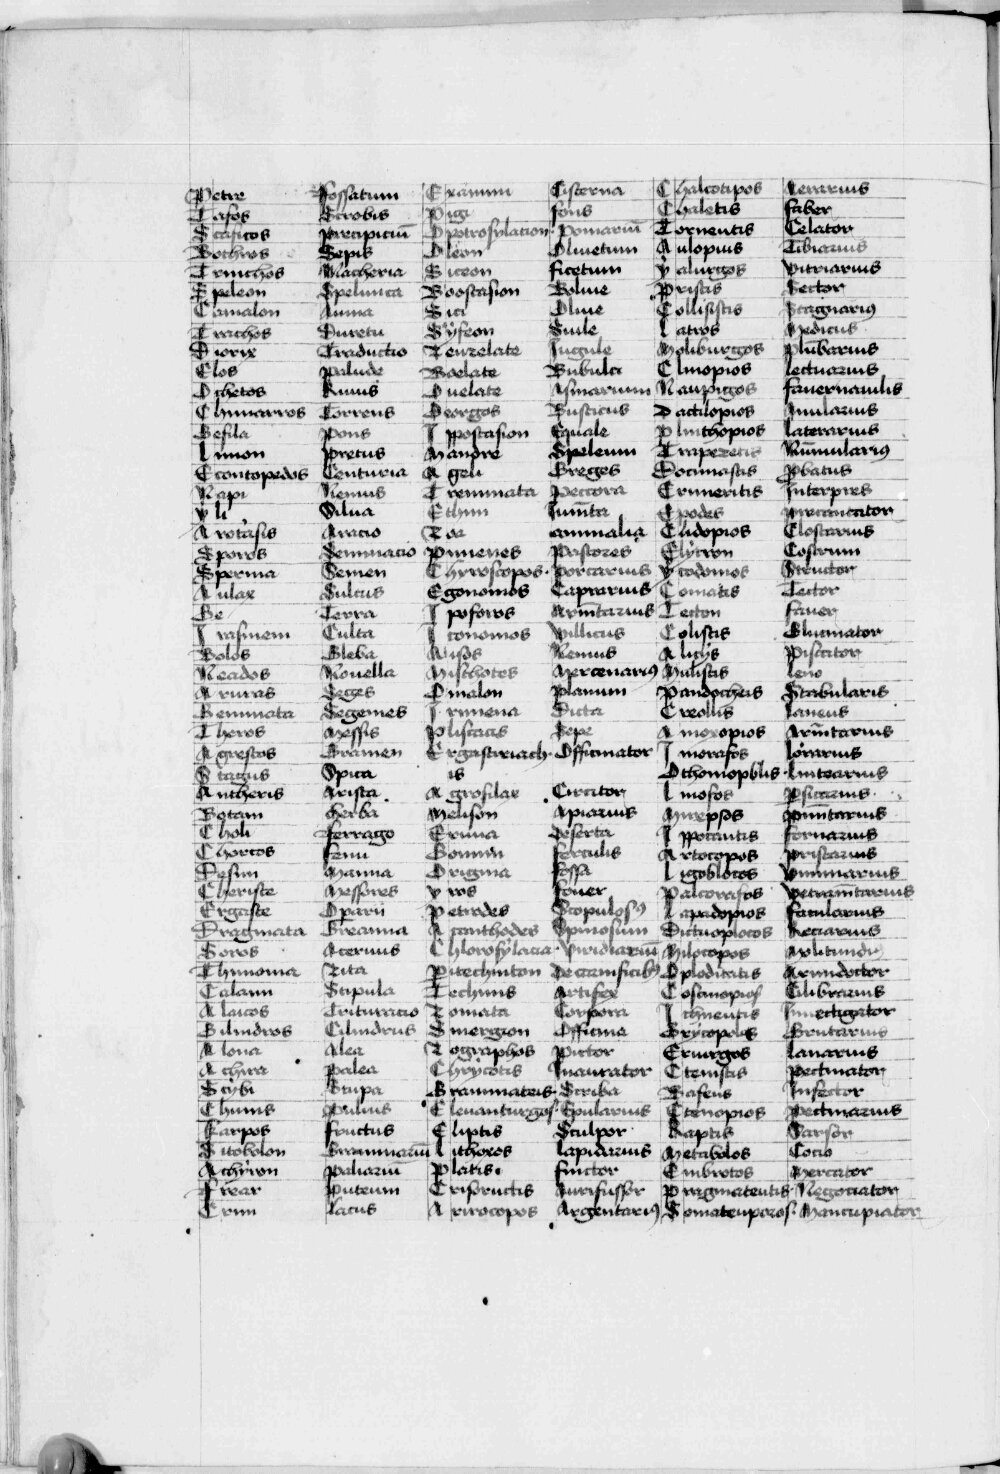 Petre Fossatum Examini Cisterna Chalcotipos Aerarius
Tafos Scrobis Pigi fons Chaletis faber
Scafitos Precipiciū Opotrofylation Pomariū Tornentis Celator
Bothros Sepis Oleon Oliuetum Aulopius Tibiarius
Trinchos Macheria Siceon ficetum Yalurgos Vitriarius
Speleon Spelunca Boostasion Boluie Pristis Sector
Camalon Anima Sici Oliue Collisistis Stagnariꝰ
Trachos Duretu Syfeon Suile Iatros Medicus
Diorix Traductio Teuzelate Iugule Moliburgos Plūbarius
Elos Palude Boelate Bubulci Clinopios lectuarius
Ochetos Riuus Ouelate Asinarium Naupigos fauernauilis
Chimarros Torrens Georgos Rusticus Dactilopios Anularius
Gefila Pons Ippostasion Equale Plinthopios laterarius
Limon Pretus Mandre Speleum Trapezetis Nūmulariꝰ
Econtopedos Centuria Ageli Greges Docimastis Pbatus
Napi Nemus Tremmata Peccora Ermeritis Interpres
Yli Silua Ethim Iumta Epodes precantator
Arotasis Aratio Toa animalia Clidopios Clostarius
Sporos Seminatio Pimenes Pastores Elytron Costrum
Sperma Semen Chyroscopos Porcarius Ycodomos Structor
Aulax Sulcus Egonomos Caprarius Comatis Tector
Ge Terra Ipoforos Armtarius Tecton fauer
Irasimem Culta Iconomos Villicus Colistis Glutinator
Bolos Gleba Misos Remus Alieys Piscator
Neados Nouella Misthotos Mercenariꝰ Mulistis leno
Aruras Seges Omalon planum Pandocheis Stabularis
Gemmata Segemes Irimena Dicta Creolis laneus
Theros Messis Pliscacis Sepe Amoxopios Armtarius
Agrestos Gramen Ergastriach Officinator Imorafos lorarius
Stagus Spica is Othomopolis linteariius
Antheris Arista Agrofilax Circitor Imofos Psicarius
Botam herba Melison Apiarius Mirepsos pimtarius
Choli ferrago Erima deserta Ippocautis fornarius
Chortos fenu Bonnin ferculis Artocopos pristarius
Desim Manna Origma fossa Ligoblotos Viminarius
Cheriste Messores Yros fouer Palcorafos Vetramtarius
Ergaste Oparii Petrides Scopulosꝰ Lapadopios facularius
Dragmata Greamia Acanthodes Spinosum Dictuoplocos Reciarius
Soros Aceruus Chlorofylacia Viridiariū Milocopos Molitundi
Thimoma Tita Pitechniton De tamificibꝰ Oploditatis Armidoctor
Calami Stipula Techinis Artifex Coscinopios Cilibrarius
Alaicos Trituracio Tomata Corpora Ichneutis Inuestigator
Bilindros Cilindrus Sinergion Officina Grycopolis Grutarius
Alona Alea Tographos Pictor Eriurgos lanarius
Achira Palea Chrycotis Inaurator Ctenistis Pectinator
Scybi Stupa Grammateis Scriba Bafeus Infector
Chums Puluis Eleuanturgos Epularius Ctenopios Pectinarius
Karpos fructus Eliptis Sculpor Raptis Sarsor
Sitobolon Grammariū Lithoxos lapidarius Metabolos Cotio
Achyron Paliariū Platis finctor Embrotos Mercator
Frear Puteum Crisoructis Aurifussor Pragmatentis Negociator
Crim lacus Arirocopos Argentariꝰ Somatenporos Mancupiator